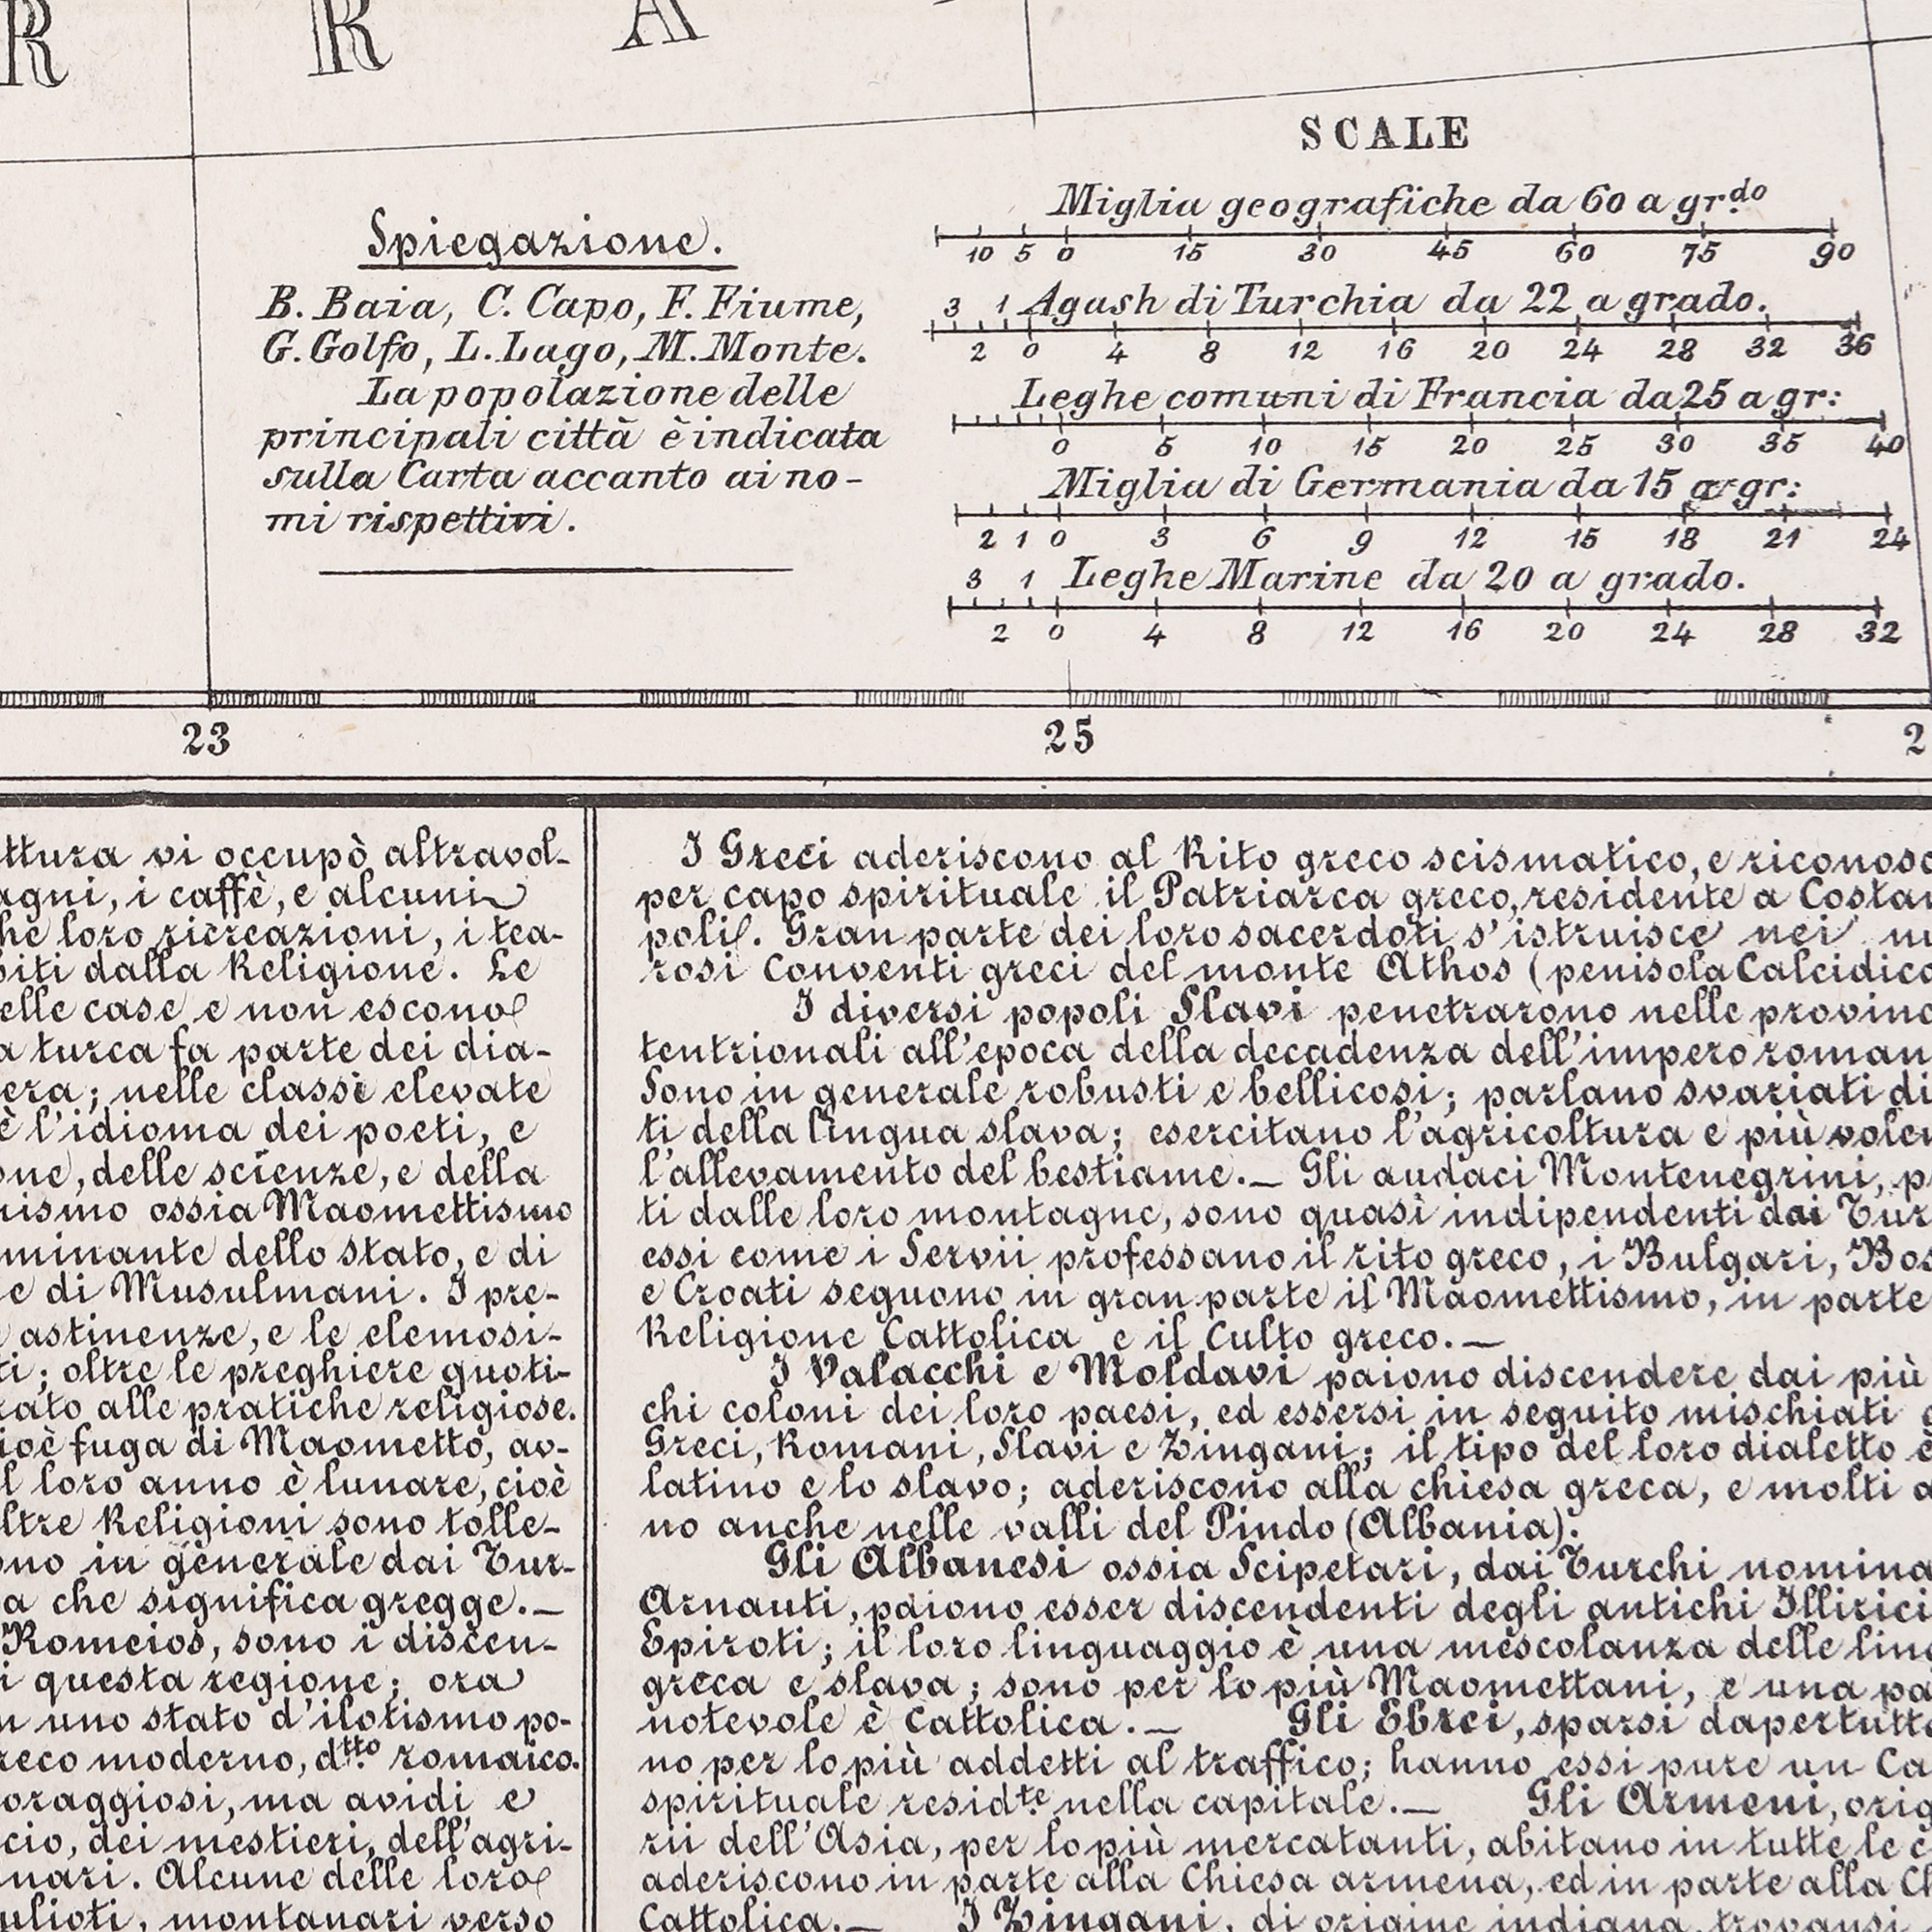 R R A
SCALE
Miglia geografiche da 60 a gr.do
10 5 0 15 30 45 60 75 90
3 1 Agash di Turchia da 22 a grado.
2 0 4 8 12 16 20 24 28 32 36
Leghe comuni di Francia da 25 a gr:
0 5 10 15 20 25 30 35 40
Miglia di Germania da 15 a gr:
2 1 0 3 6 9 12 15 18 21 24
3 1 Leghe Marine da 20 a grado.
2 0 4 8 12 16 20 24 28 32
Spiegazione.
B. Baia, C. Capo, F. Fiume,
G. Golfo, L. Lago, M. Monte.
La popolazione delle
principali città è indicata
sulla Carta accanto ai no-
mi rispettivi.
23 25 2
ttura vi occupò altravol-
agni, i caffè, e alcuni
he loro ricreazioni, i tea-
biti dalla Religione. Le
elle case e non escono
a turca fa parte dei dia-
era; nelle classi elevate
è l'idioma dei poeti, e
one, delle scienze, e della
nismo ossia Maomettismo
minante dello stato, e di
e di Musulmani. I pre-
astinenze, e le elemosi-
ti; oltre le preghiere quoti-
rato alle pratiche religiose.
ioè fuga di Maometto, av-
l loro anno è lunare, cioè
ltre Religioni sono tolle-
ono in generale dai Tur-
a che significa gregge.—
Romeios, sono i discen-
i questa regione; ora
n uno stato d'ilotismo po-
reco moderno, d.tto romaico.
oraggiosi, ma avidi e
cio, dei mestieri, dell'agri-
nari. Alcune delle loro
ulioti, montanari verso
I Greci aderiscono al Rito greco scismatico, e riconosc
per capo spirituale il Patriarca greco, residente a Costan
poli. Gran parte dei loro sacerdoti s'istruisce nei nu
rosi Conventi greci del monte Athos (penisola Calcidica
I diversi popoli Slavi penetrarono nelle provinc
tentrionali all'epoca della decadenza dell'impero roman
Sono in generale robusti e bellicosi; parlano svariati di
ti della lingua slava; esercitano l'agricoltura e più volen
l'allevamento del bestiame.— Gli audaci Montenegrini, pr
ti dalle loro montagne, sono quasi indipendenti dai Tur
essi come i Servii professano il rito greco, i Bulgari, Bos
e Croati seguono in gran parte il Maomettismo, in parte
Religione Cattolica e il Culto greco.—
I Valacchi e Moldavi paiono discendere dai più
chi coloni dei loro paesi, ed essersi in seguito mischiati
Greci, Romani, Slavi e Zingani; il tipo del loro dialetto è
latino e lo slavo; aderiscono alla chiesa greca, e molti a
no anche nelle valli del Pindo (Albania).
Gli Albanesi ossia Scipetari, dai Turchi nomina
Arnauti, paiono esser discendenti degli antichi Illirici
Epiroti; il loro linguaggio è una mescolanza delle ling
greca e slava; sono per lo più Maomettani, e una pa
notevole è Cattolica.— Gli Ebrei, sparsi dapertutto
no per lo più addetti al traffico; hanno essi pure un Ca
spirituale resid.te nella capitale.— Gli Armeni, orig
rii dell'Asia, per lo più mercatanti, abitano in tutte le c
aderiscono in parte alla Chiesa armena, ed in parte alla Ch
Cattolica.— I Zingani, di origine indiana, trovansi